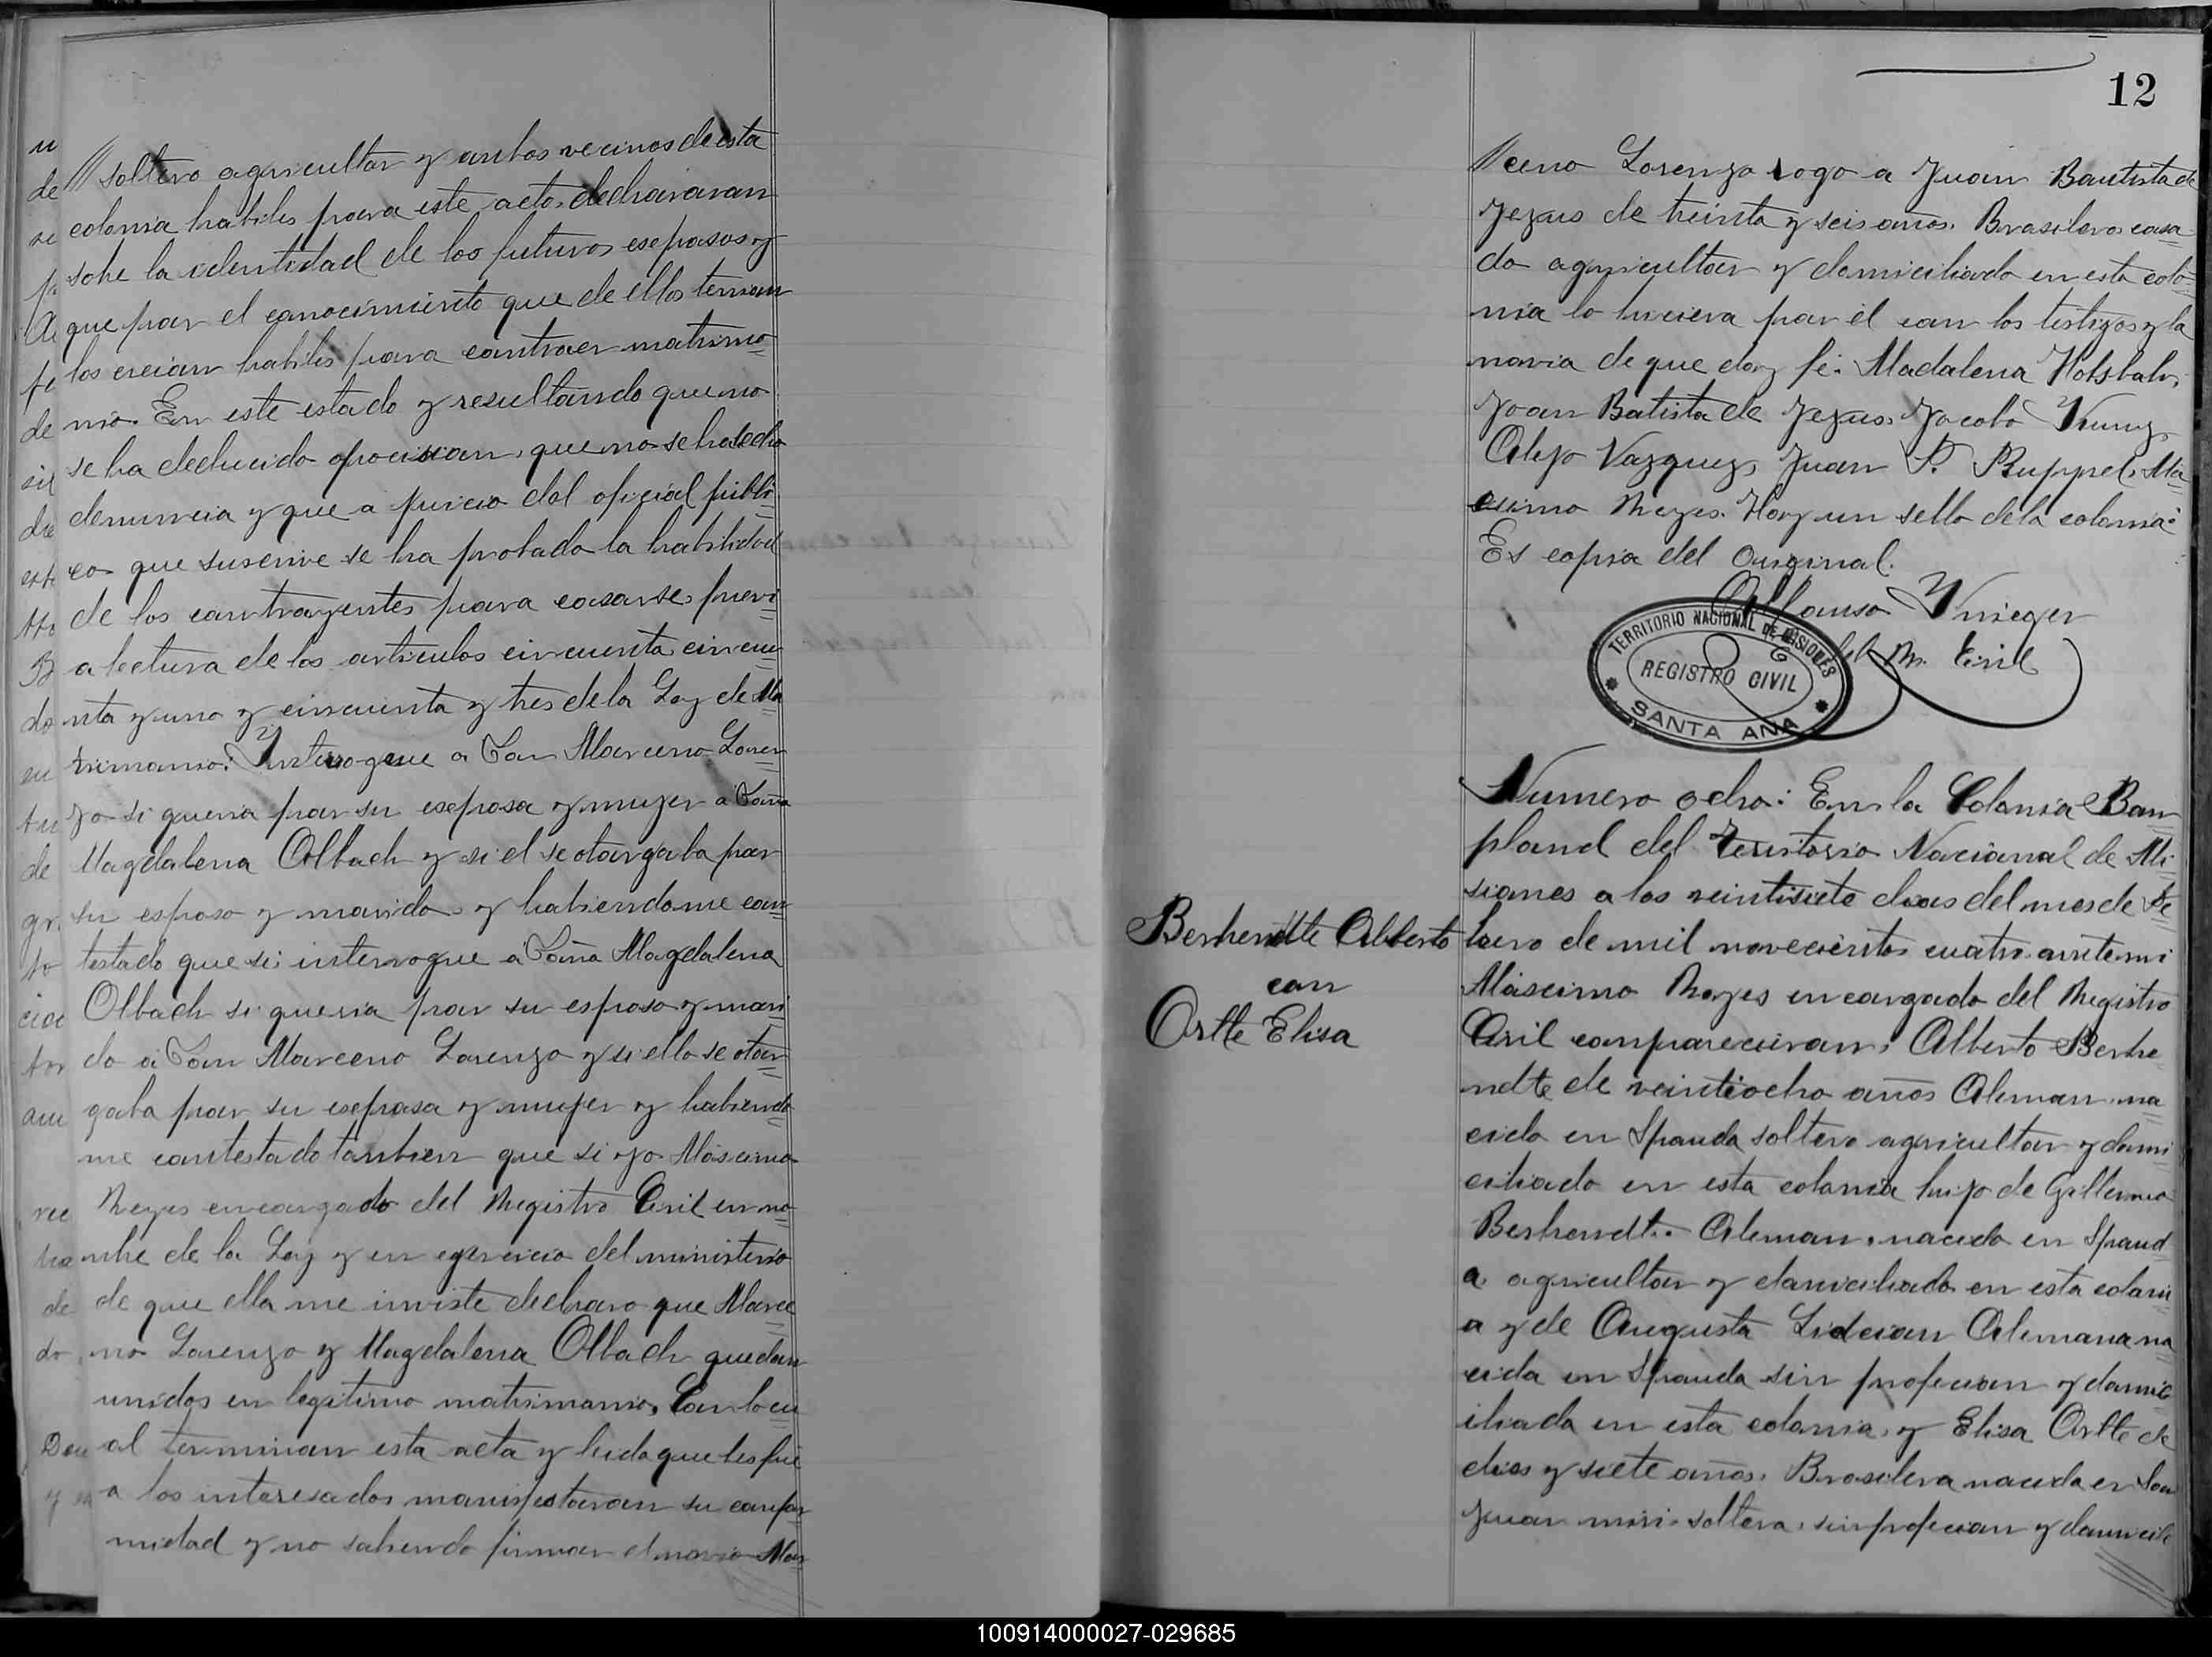 soltero agricultor y ambos vecinos de esta
colonia habiles para este acto, declararan
sobre la identidad de los futuros esposos y
que por el conocimiento que de ellos tenian
los creian habiles para contraer matrimo
nio. En este estado y resultando que no
se ha deducido oposicion, que no se ha hecho
denuncia y que a juicio del oficial públi
co que suscrive se ha probado la habilidad
de los contrayentes para casarse, previ
a lectura de los articulos cincuenta, cincue
nta y uno y cincuenta y tres de la Ley de Ma
trimonio: Interrogue a Don Marceno Loren
zo si queria por su esposa y mujer a Doña
Magdalena Olbach y si el se otorgaba por
su esposo y marido, y habiendome con
testado que si; interrogue á Doña Magdalena
Olbach si queria por su esposo y mari
do á Don Marceno Lorenzo y si ella se otor
gaba por su esposa y mujer y habiendo
me contestado tanbien que si yo Máscimo
Reyes encargado del Registro Civil en no
mbre de la Ley y en egercicio del ministerio
de que ella me inviste declaro que Marce
no Lorenzo y Magdalena Olbach quedan
unidos en legitimo matrimonio. Con lo cu
al terminan esta acta y leida que les fué
a los interesados manifestaron su confor
midad y no sabiendo firmar el novio Mar
12
ceno Lorenzo rogo a Juan Bautista de
Jezus de treinta y seis años, Brasilero casa
do agricultor y domiciliado en esta colo
nia lo hiciera por él con los testigos y la
novia de que doy fé: Madalena Holsbalr,
Joan Batista de Jezus, Jocobo Kunz,
Alejo Vazquez, Juan P. Ruppel, Má
ximo Reyes. Hay un sello de la colonia:
Es copia del Original.
Alfonso Krieger
R. Civil
TERRITORIO NACIONAL DE MISIONES
REGISTRO CIVIL
SANTA ANA
Berhendte Alberto
con
Ortte Elisa
Numero ocho: En la Colonia Bon
pland del Territorio Nacional de Mi
siones a los veintisiete dias del mes de Fe
brero de mil novecientos cuatro ante mi
Máscimo Reyes encargado del Registro
Civil comparecieron, Alberto Berhe
ndte de veintiocho años Aleman, na
cido en Spanda soltero agricultor y domi
ciliado en esta colonia hijo de Gillermo
Berhendt. Aleman, nacido en Spand
a, agricultor y domiciliado en esta coloni
a y de Augusta Lidcian Alemana na
cida en Spanda sin profecion y domic
iliada en esta colonia, y Elisa Ortte de
dies y siete años, Brasilera nacida en San
Juan mini, soltera, sin profecion y domicili
100914000027-029685